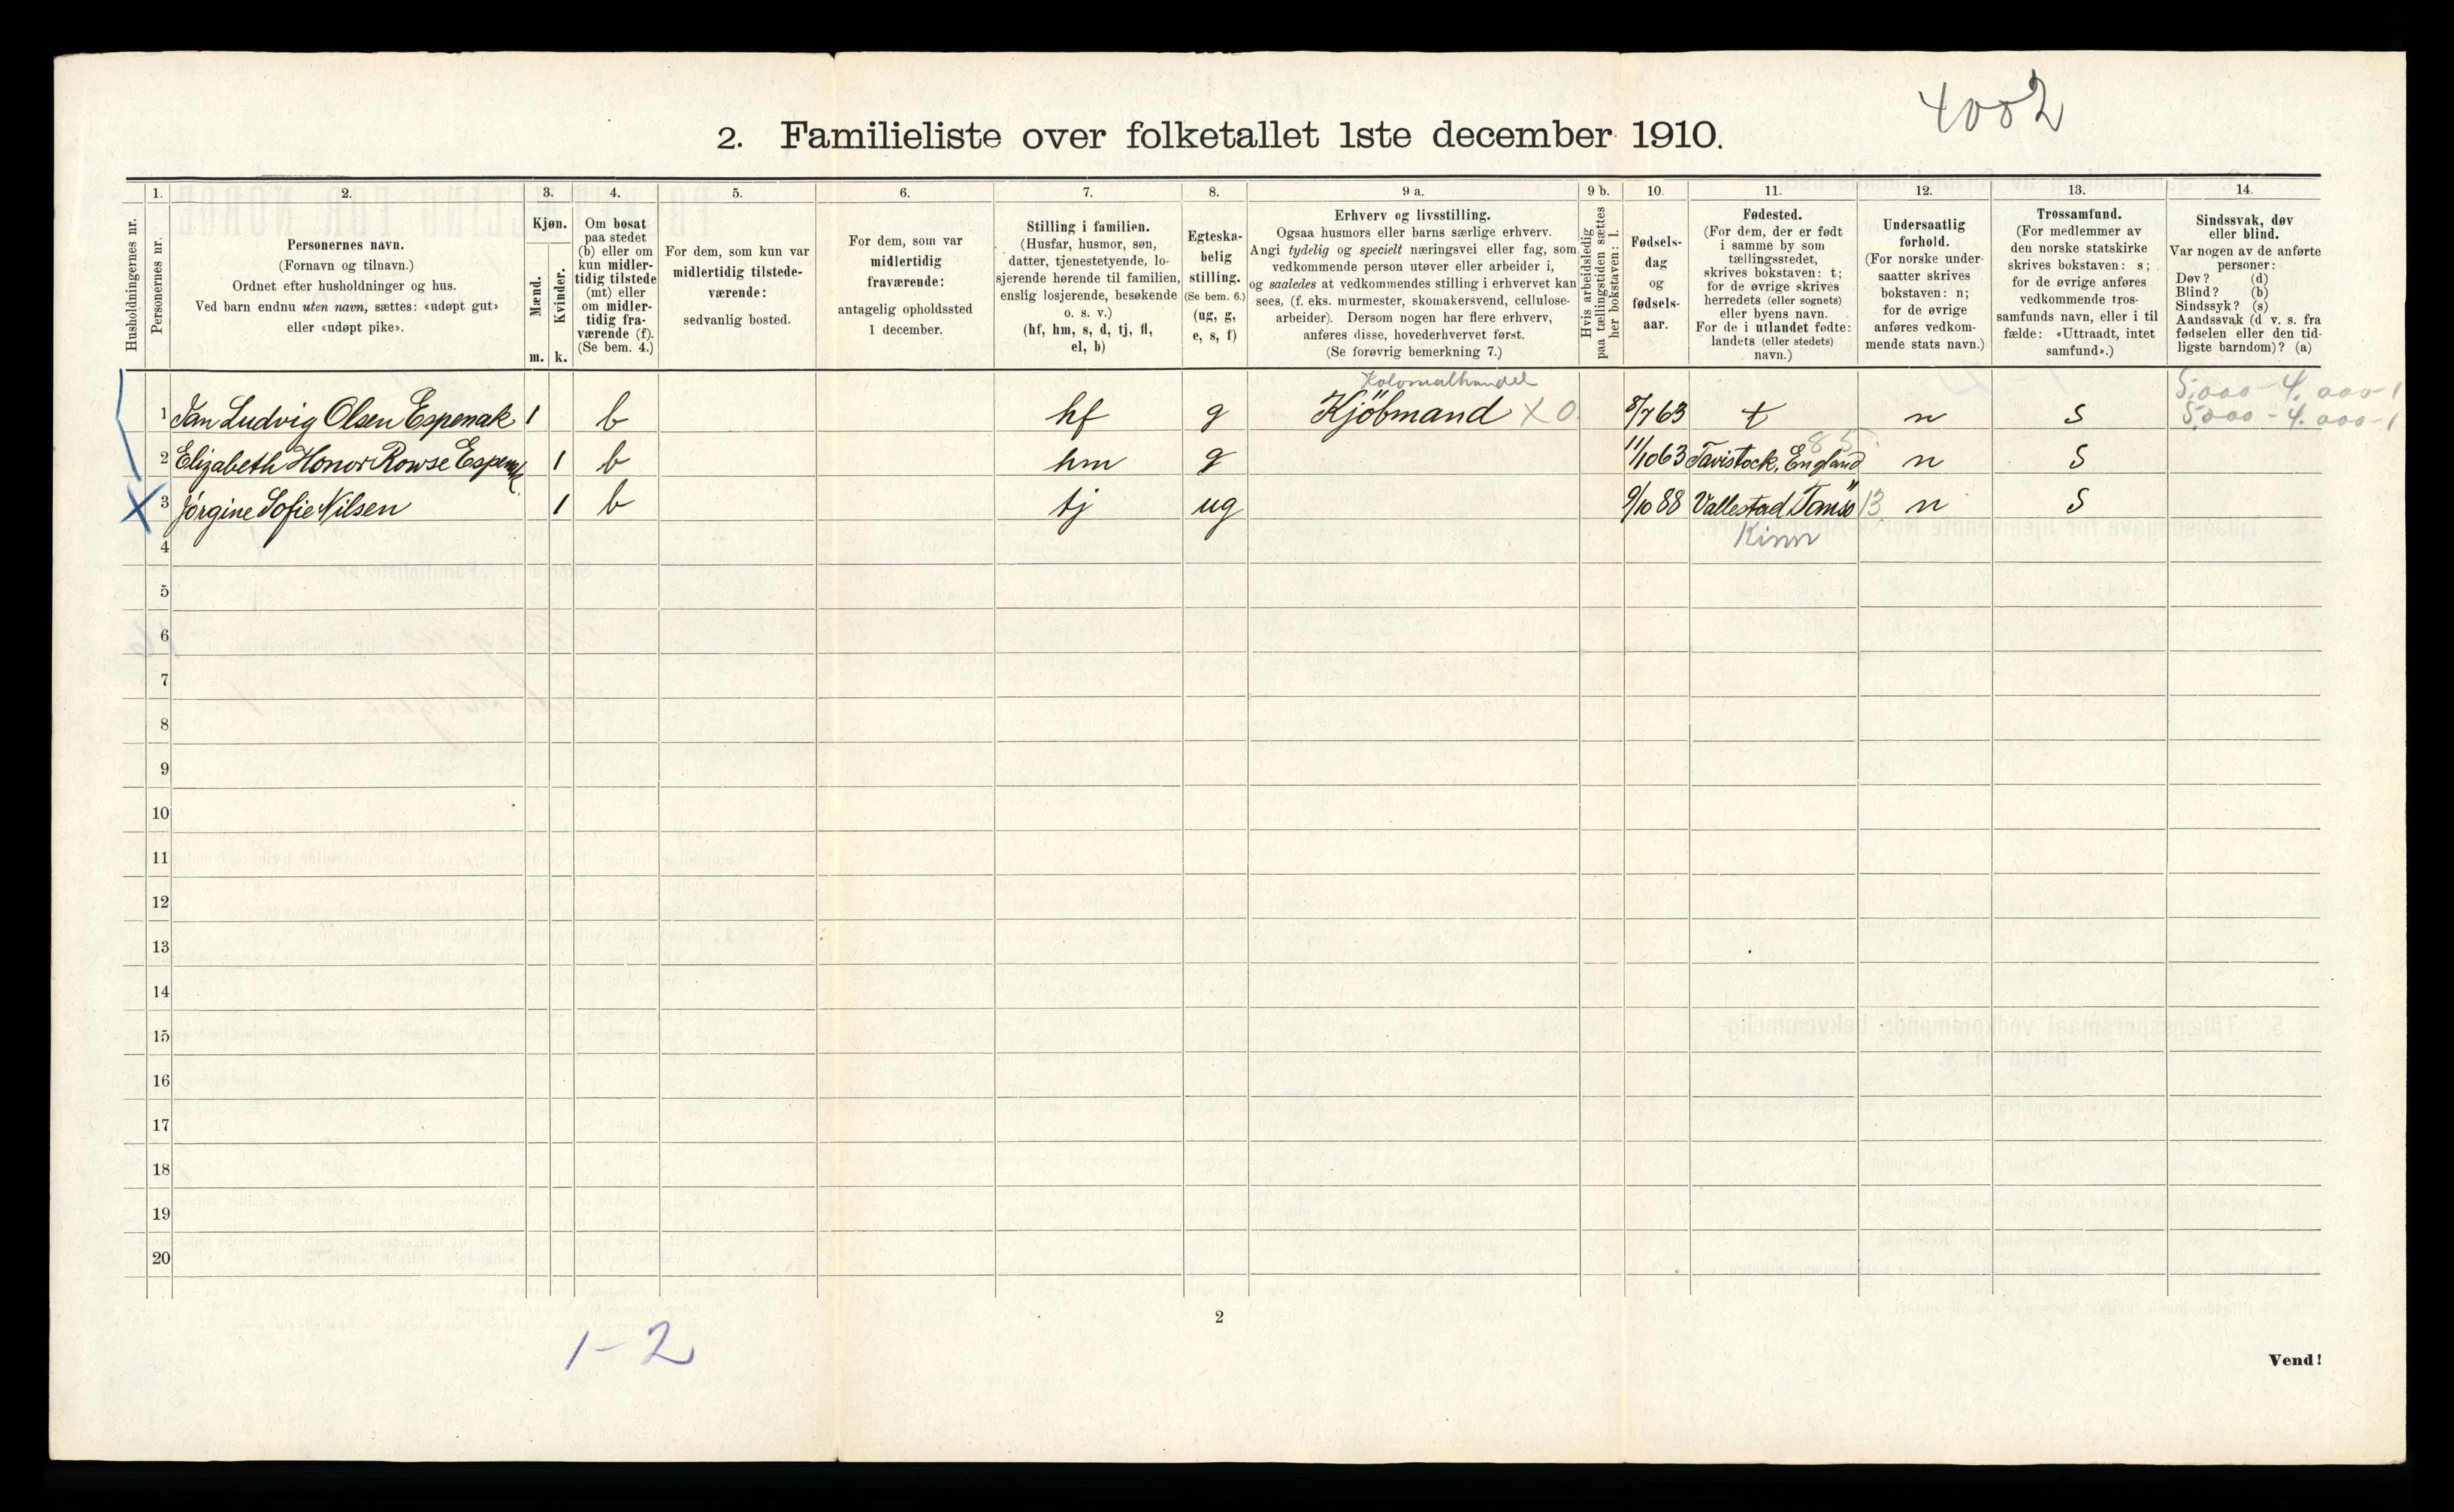 4002
2. Familieliste over folketallet 1ste december 1910.
Husholdningernes nr.
1.
Personernes nr.
2.
Personernes navn.
(Fornavn og tilnavn.)
Ordnet efter husholdninger og hus.
Ved barn endnu uten navn, sættes: «udøpt gut»
eller «udøpt pike».
3.
Kjøn.
Mænd.
Kvinder.
m. k.
4.
Om bosat
paa stedet
(b) eller om
kun midler-
tidig tilstede
(mt) eller
om midler-
tidig fra-
værende (f).
(Se bem. 4.)
5.
For dem, som kun var
midlertidig tilstede-
værende:
sedvanlig bosted.
6.
For dem, som var
midlertidig
fraværende:
antagelig opholdssted
1 december.
7.
Stilling i familien.
(Husfar, husmor, søn,
datter, tjenestetyende, lo-
sjerende hørende til familien,
enslig losjerende, besøkende
o. s. v.)
(hf, hm, s, d, tj, fl,
el, b)
8.
Egteska-
belig
stilling.
(Se bem. 6.)
(ug, g,
e, s, f)
9 a.
Erhverv og livsstilling.
Ogsaa husmors eller barns særlige erhverv.
Angi tydelig og specielt næringsvei eller fag, som
vedkommende person utøver eller arbeider i,
og saaledes at vedkommendes stilling i erhvervet kan
sees, (f. eks. murmester, skomakersvend, cellulose-
arbeider). Dersom nogen har flere erhverv,
anføres disse, hovederhvervet først.
(Se forøvrig bemerkning 7.)
9 b.
Hvis arbeidsledig
paa tællingstiden sættes
her bokstaven: l.
10.
Fødsels-
dag
og
fødsels-
aar.
11.
Fødested.
(For dem, der er født
i samme by som
tællingsstedet,
skrives bokstaven: t;
for de øvrige skrives
herredets (eller sognets)
eller byens navn.
For de i utlandet fødte:
landets (eller stedets)
navn.)
12.
Undersaatlig
forhold.
(For norske under-
saatter skrives
bokstaven: n;
for de øvrige
anføres vedkom-
mende stats navn.)
13.
Trossamfund.
(For medlemmer av
den norske statskirke
skrives bokstaven: s;
for de øvrige anføres
vedkommende tros-
samfunds navn, eller i til
fælde: «Uttraadt, intet
samfund».)
14.
Sindssvak, døv
eller blind.
Var nogen av de anførte
personer:
Døv? (d)
Blind? (b)
Sindssyk? (s)
Aandssvak (d. v. s. fra
fødselen eller den tid-
ligste barndom)? (a)
Kolonialhandel 5.000-4.000-1
1 Jan Ludvig Olsen Espenak 1 b hf g Kjöbmand X 0 8/7 63 t n S 5.000-4.000-1
85
2 Elizabeth Honor Rowse Espenak 1 b hm g 11/10 63 Tavistock, England n S
3 Jörgine Sofie Nilsen 1 b tj ug 9/10 88 Vallestad 13 n S
Kinn
4
5
6
7
8
9
10
11
12
13
14
15
16
17
18
19
20
2
1-2
Vend!